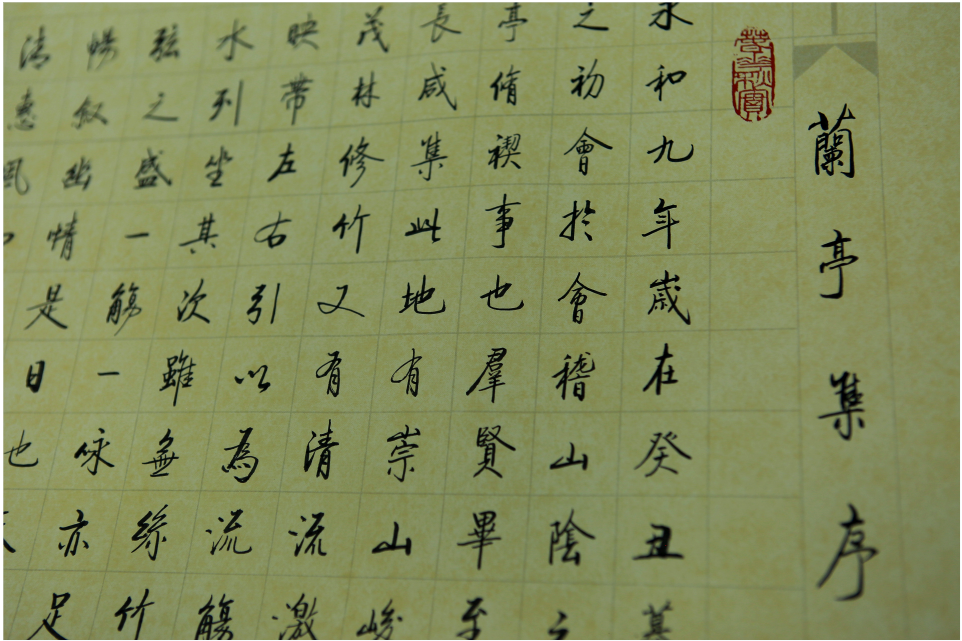 蘭亭集序
永和九年歲在癸丑
之初會於會稽山陰之
亭脩禊事也羣賢畢至
長咸集此地有崇山峻
茂林修竹又有清流激
映帶左右引以為流觴
水列坐其次雖無絲竹
弦之盛一觴一詠亦足
暢叙幽情是日也
清惠風